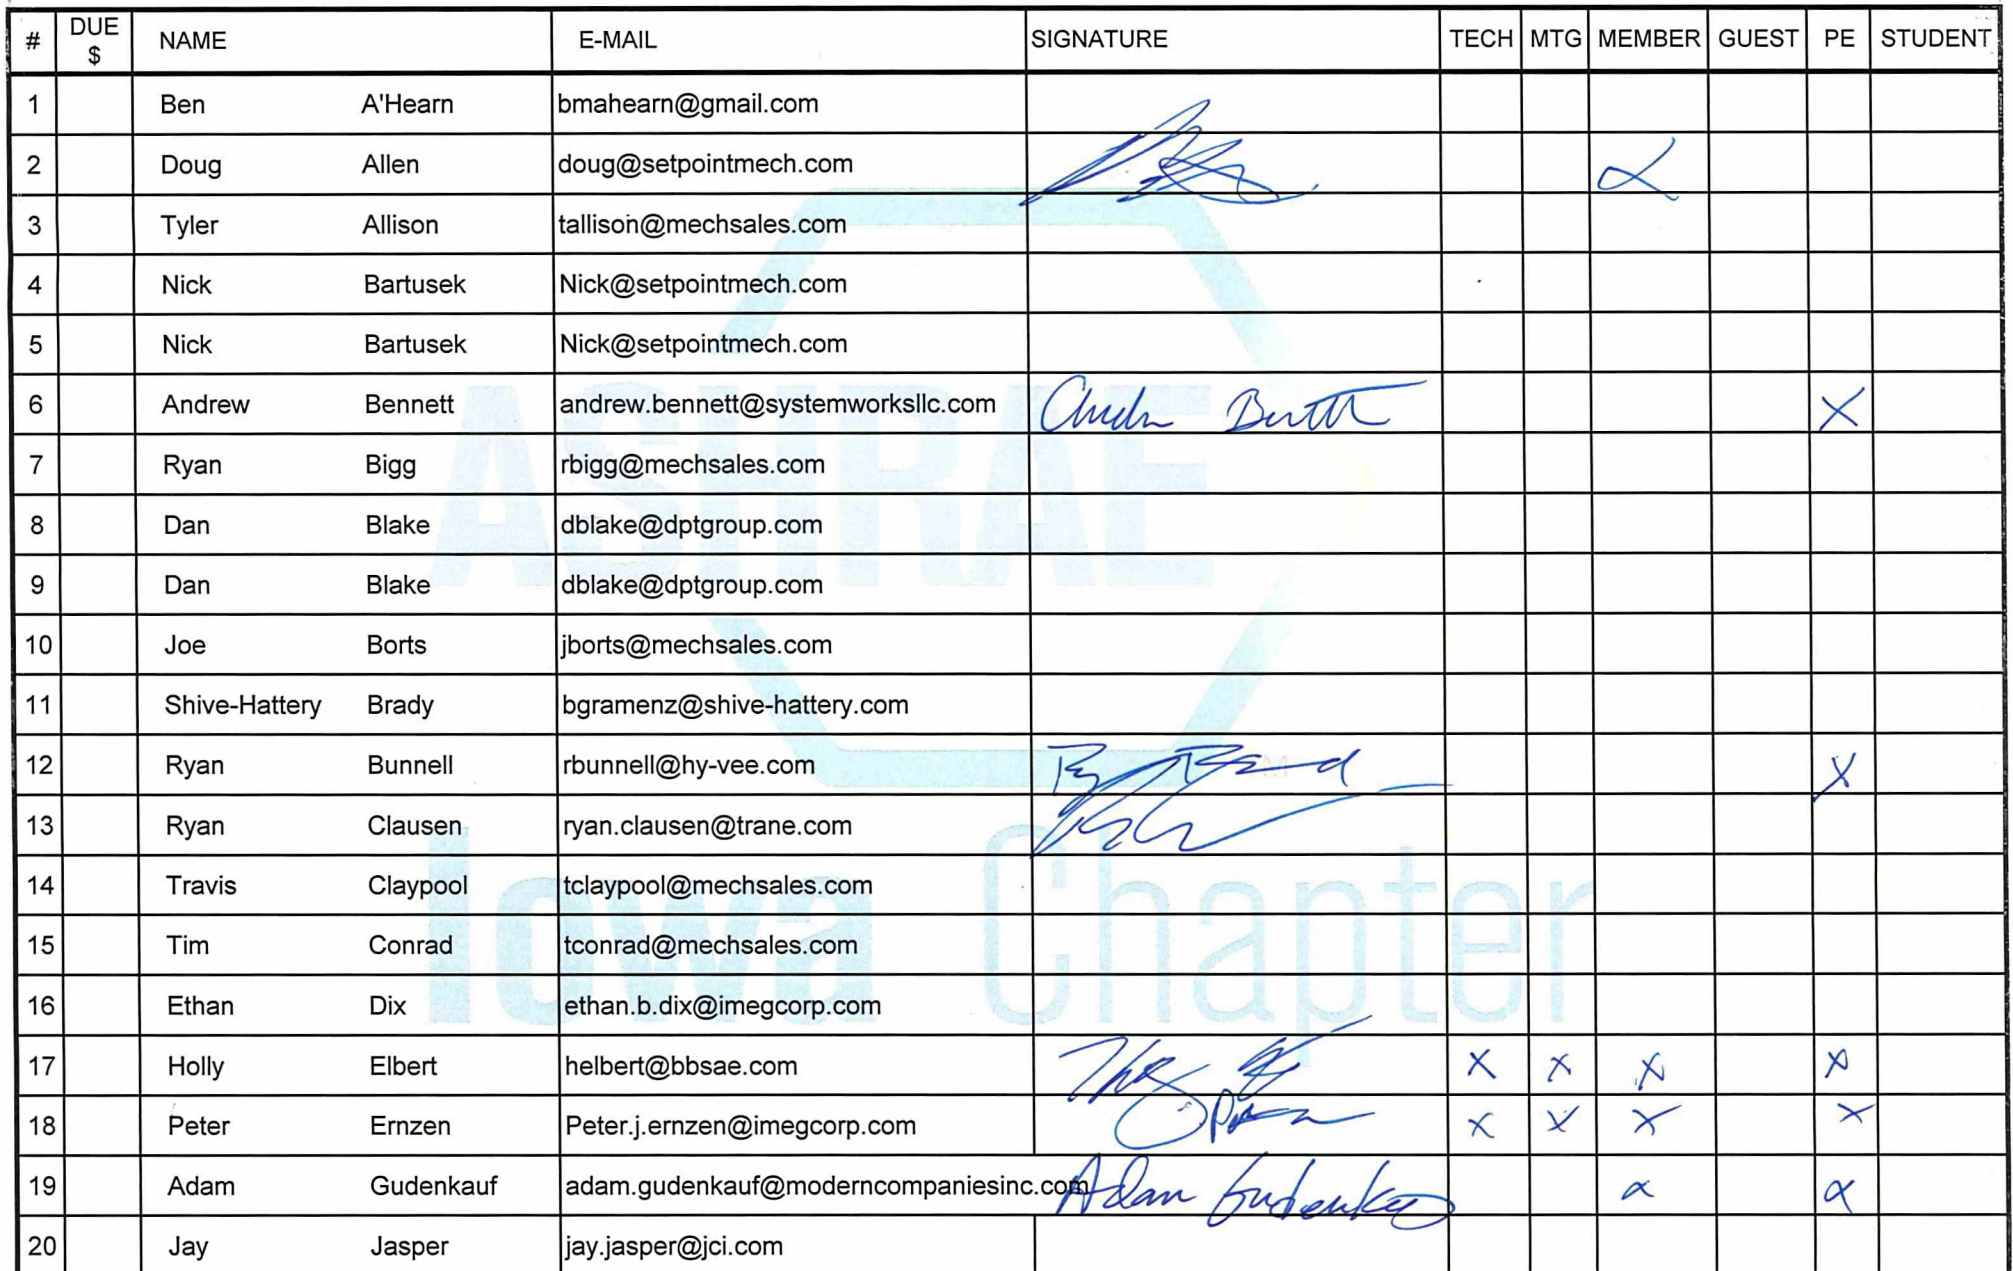 # DUE $ NAME E-MAIL SIGNATURE TECH MTG MEMBER GUEST PE STUDENT
1 Ben A'Hearn bmahearn@gmail.com
2 Doug Allen doug@setpointmech.com X
3 Tyler Allison tallison@mechsales.com
4 Nick Bartusek Nick@setpointmech.com
5 Nick Bartusek Nick@setpointmech.com
6 Andrew Bennett andrew.bennett@systemworksllc.com X
7 Ryan Bigg rbigg@mechsales.com
8 Dan Blake dblake@dptgroup.com
9 Dan Blake dblake@dptgroup.com
10 Joe Borts jborts@mechsales.com
11 Shive-Hattery Brady bgramenz@shive-hattery.com
12 Ryan Bunnell rbunnell@hy-vee.com X
13 Ryan Clausen ryan.clausen@trane.com
14 Travis Claypool tclaypool@mechsales.com
15 Tim Conrad tconrad@mechsales.com
16 Ethan Dix ethan.b.dix@imegcorp.com
17 Holly Elbert helbert@bbsae.com X X X X
18 Peter Ernzen Peter.j.ernzen@imegcorp.com X X X X
19 Adam Gudenkauf adam.gudenkauf@moderncompaniesinc.com Adam Gudenkauf X X
20 Jay Jasper jay.jasper@jci.com
ASHRAE
Iowa Chapter